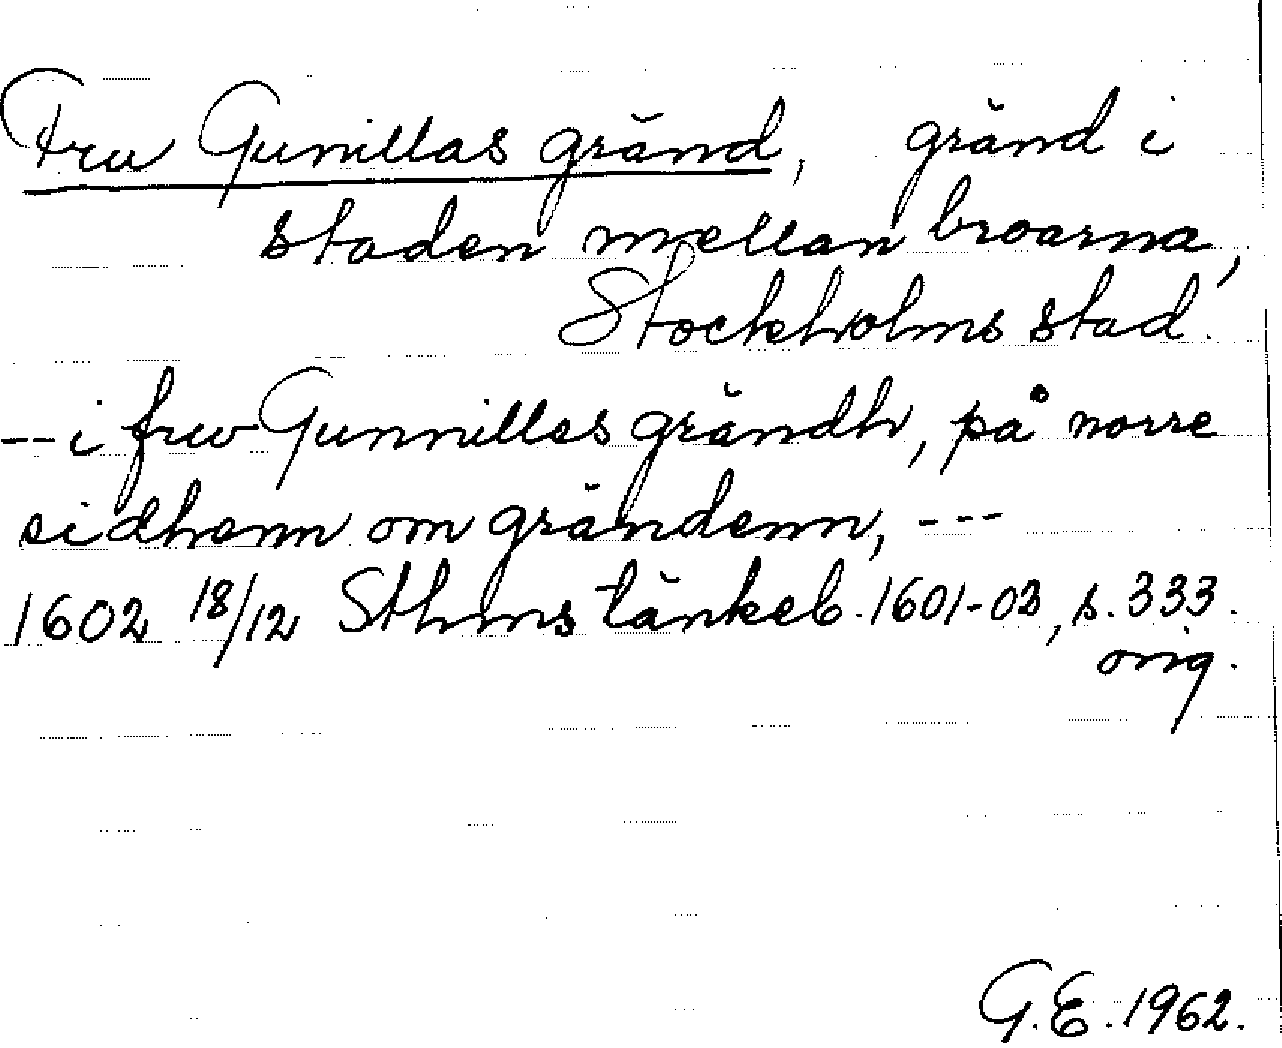 Fru Gunillas gränd, gränd i
staden mellan broarna,
Stockholms stad.
--i frw Gunnillas grändh, på norre
sidhenn om grändenn, ---
1602 18/12 Sthms tänkeb. 1601-03, s. 333.
orig.
G.E. 1962.